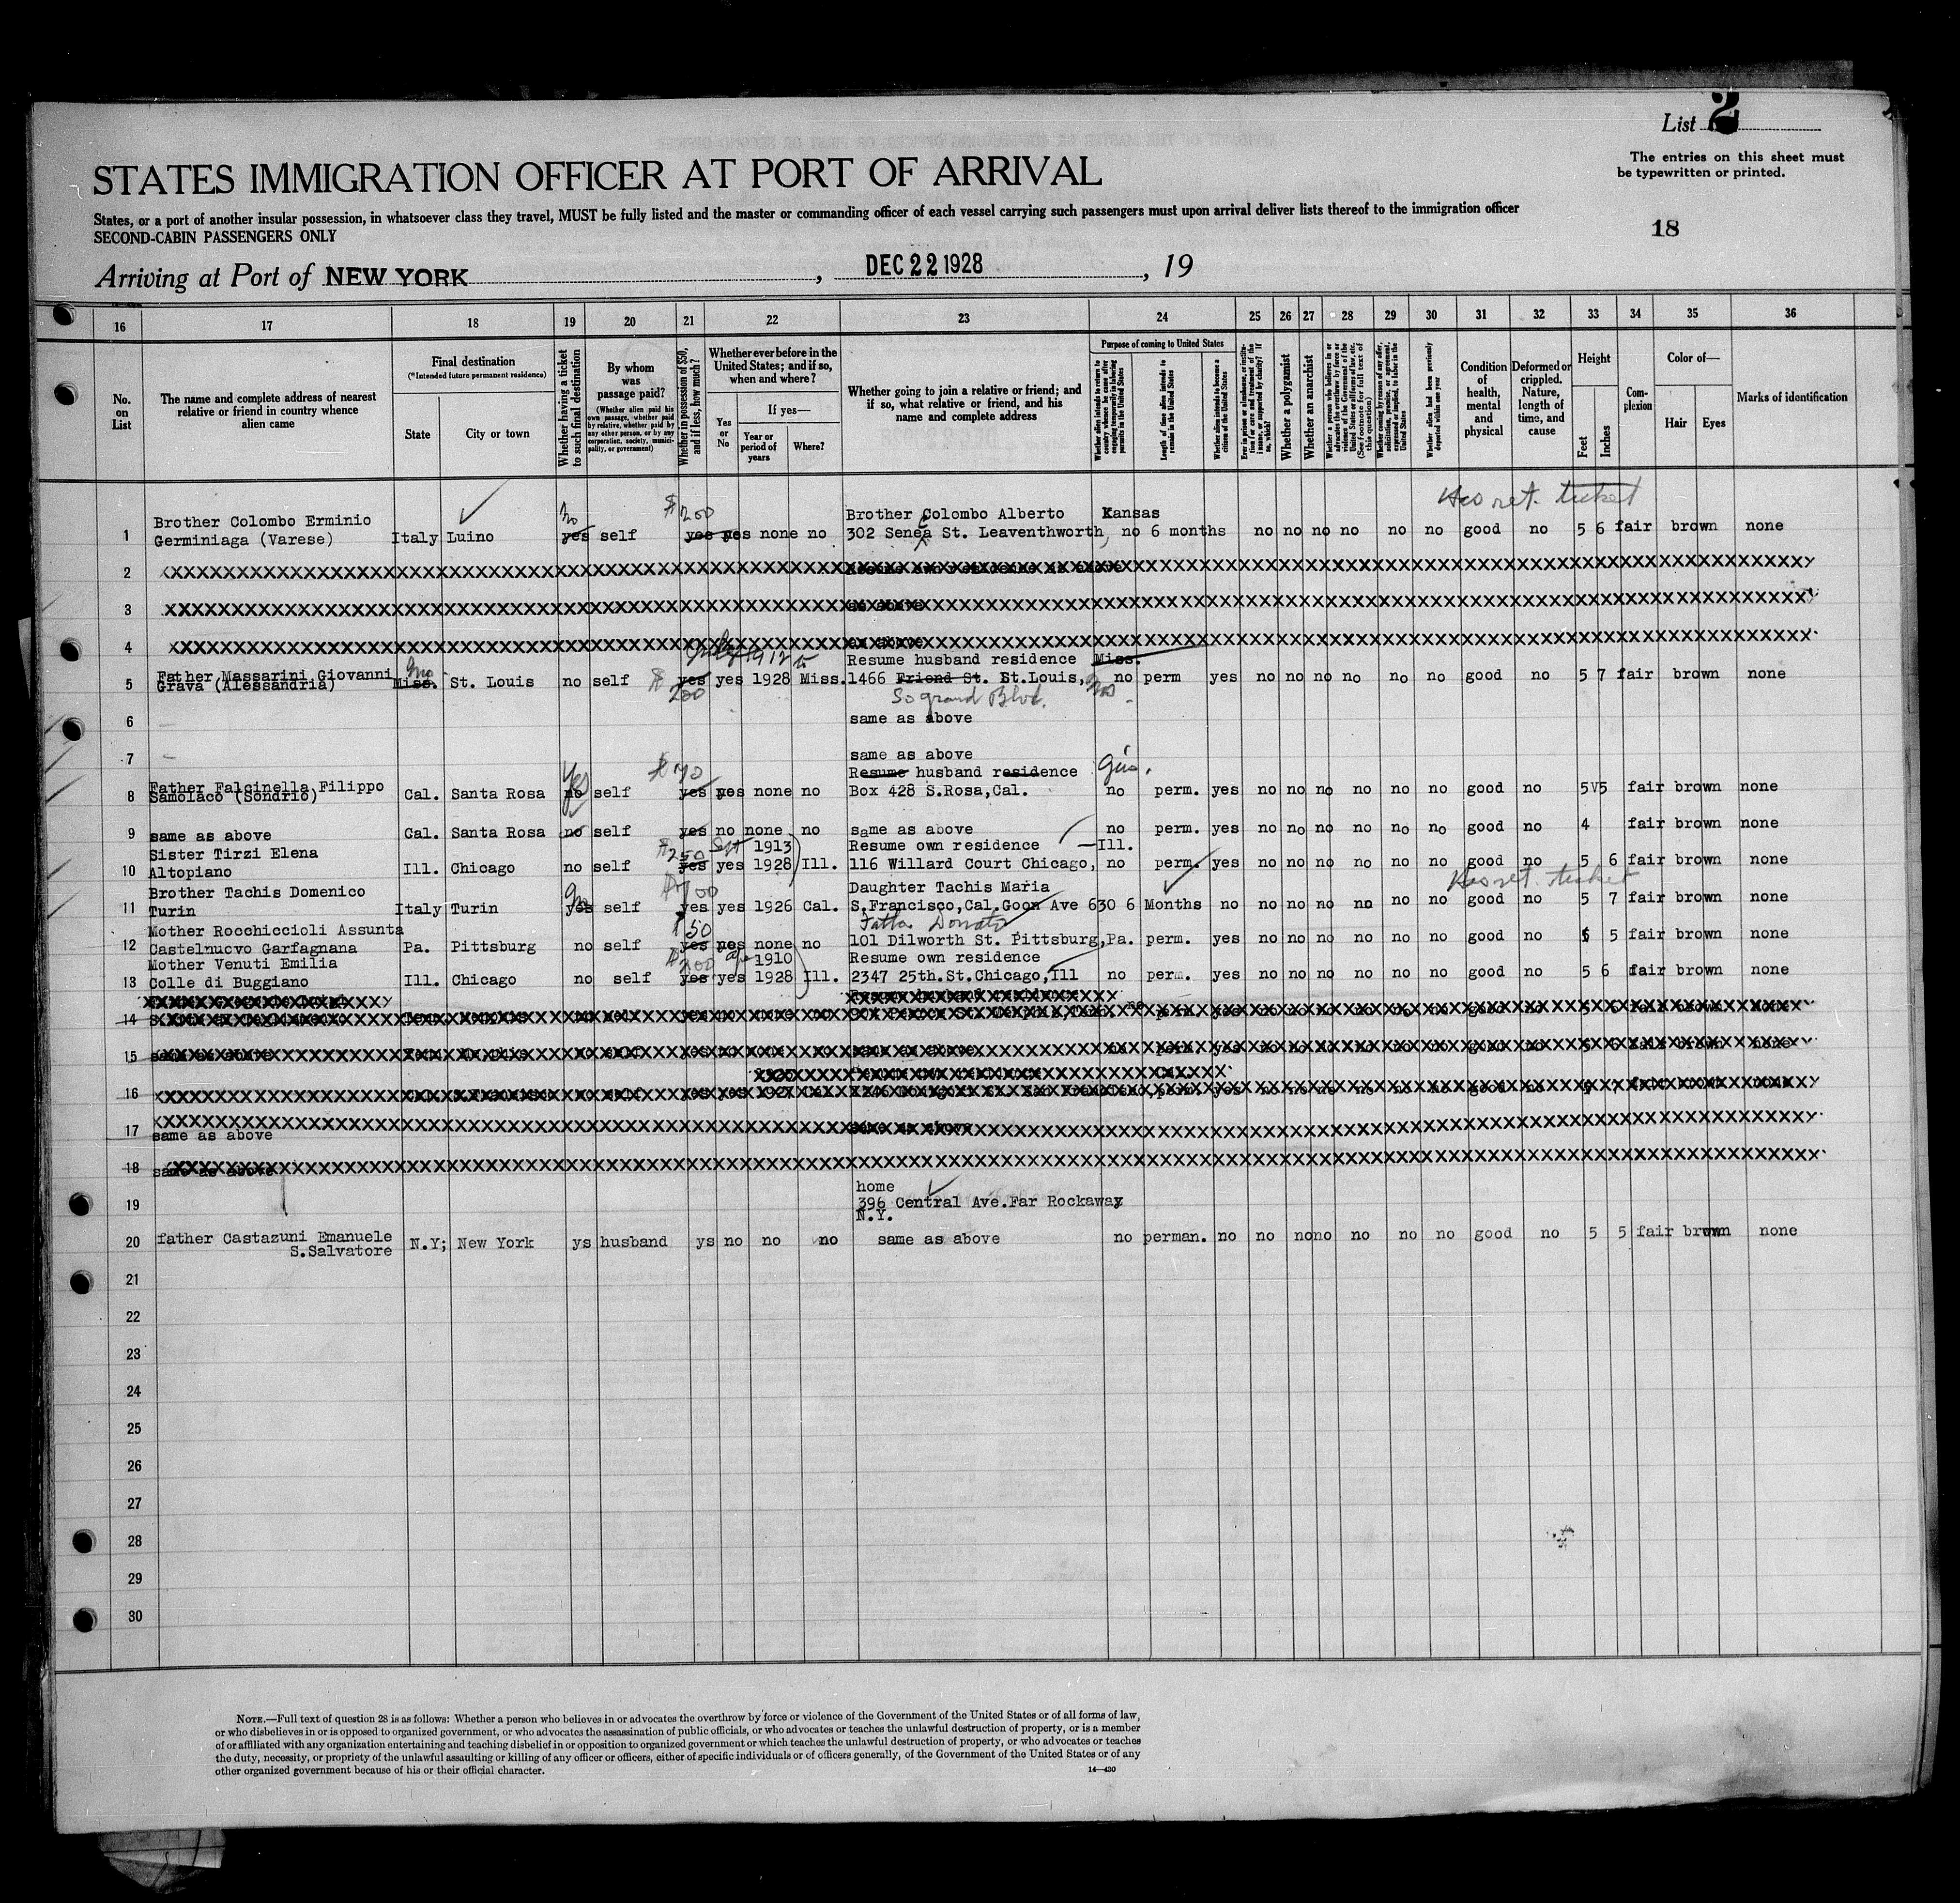 List 2
The entries on this sheet must
be typewritten or printed.
STATES IMMIGRATION OFFICER AT PORT OF ARRIVAL
States, or a port of another insular possession, in whatsoever class they travel, MUST be fully listed and the master or commanding officer of each vessel carrying such passengers must upon arrival deliver lists thereof to the immigration officer
SECOND-CABIN PASSENGERS ONLY
18
Arriving at Port of NEW YORK, DEC 22 1928, 19
16 17 18 19 20 21 22 23 24 25 26 27 28 29 30 31 32 33 34 35 36
No. on List
The name and complete address of nearest relative or friend in country whence alien came
Final destination
(*Intended future permanent residence)
State
City or town
Whether having a ticket to such final destination
By whom was passage paid?
(Whether alien paid his own passage, whether paid by relative, whether paid by any other person, or by any corporation, society, municipality, or government)
Whether in possession of $50, and if less, how much?
Whether ever before in the United States; and if so, when and where?
Yes or No
If yes—
Year or period of years
Where?
Whether going to join a relative or friend; and if so, what relative or friend, and his name and complete address
Purpose of coming to United States
Whether alien intends to return to country whence he came after engaging temporarily in laboring pursuits in the United States
Length of time alien intends to remain in the United States
Whether alien intends to become a citizen of the United States
Whether a polygamist
Whether an anarchist
Whether alien had been previously deported within one year
Condition of health, mental and physical
Deformed or crippled. Nature, length of time, and cause
Height
Feet
Inches
Complexion
Color of—
Hair
Eyes
Marks of identification
Has ret. ticket
Brother Colombo Erminio no $200 Brother Colombo Alberto Kansas
1 Germiniaga (Varese) Italy Luino yes self yes yes none no 302 Senea St. Leaventhworth, no 6 months no no no no no no good no 5 6 fair brown none
2
3 as above
4 as above
July 1912 to Resume husband residence Miss.
Father Massarini Giovanni Mo
5 Grava (Alessandria) Miss. St. Louis no self $200 yes yes 1928 Miss. 1466 Friend St. St.Louis, no perm yes no no no no no no good no 5 7 fair brown none
So grand Blvd. Mo
6 same as above
7 same as above
Yes $70 Resume husband residence
Father Falcinella Filippo
8 Samolaco (Sondrio) Cal. Santa Rosa no self yes yes none no Box 428 S.Rosa,Cal. no perm. yes no no no no no no good no 5 5 fair brown none
9 same as above Cal. Santa Rosa no self yes no none no same as above no perm. yes no no no no no no good no 4 fair brown none
Sister Tirzi Elena $250 Sept 1913 Resume own residence —Ill.
10 Altopiano Ill. Chicago no self yes yes 1928 Ill. 116 Willard Court Chicago, no perm. yes no no no no no no good no 5 6 fair brown none
Has ret. ticket
Brother Tachis Domenico Daughter Tachis Maria
11 Turin Italy Turin yes self yes yes 1926 Cal. S.Francisco,Cal.Goon Ave 630 6 Months no no no no no no no good no 5 7 fair brown none
Mother Rocchiccioli Assunta $50 Donato
12 Castelnucvo Garfagnana Pa. Pittsburg no self yes yes none no 101 Dilworth St. Pittsburg,Pa. perm. yes no no no no no no good no 5 5 fair brown none
Mother Venuti Emilia 1910 Resume own residence
13 Colle di Buggiano Ill. Chicago no self yes yes 1928 Ill. 2347 25th.St.Chicago,Ill no perm. yes no no no no no no good no 5 6 fair brown none
14
15 same as above
16
17 same as above
18 same as above
home
19 396 Central Ave.Far Rockaway
N.Y.
20 father Castazuni Emanuele N.Y; New York ys husband ys no no no same as above no perman. no no no no no no no good no 5 5 fair brown none
S.Salvatore
21
22
23
24
25
26
27
28
29
30
NOTE.—Full text of question 28 is as follows: Whether a person who believes in or advocates the overthrow by force or violence of the Government of the United States or of all forms of law,
or who disbelieves in or is opposed to organized government, or who advocates the assassination of public officials, or who advocates or teaches the unlawful destruction of property, or is a member
of or affiliated with any organization entertaining and teaching disbelief in or opposition to organized government or which teaches the unlawful destruction of property, or who advocates or teaches
the duty, necessity, or propriety of the unlawful assaulting or killing of any officer or officers, either of specific individuals or of officers generally, of the Government of the United States or of any
other organized government because of his or their official character.
14—430